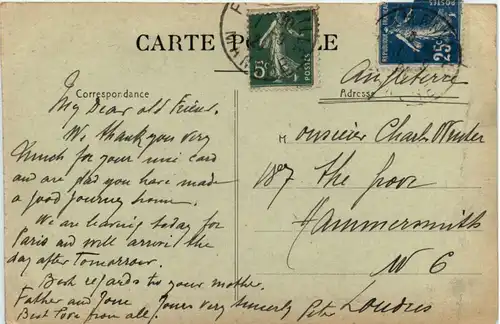 CARTE POSTALE
5c
POSTES
25c
REPUBLIQUE FRANCAISE
Angleterre
Correspondance
Adresse
My Dear old Friend.
We thank you very
much for your nice card
and are glad you have made
a good journey home.
We are leaving today for
Paris and will arrive the
day after Tomorrow.
Best regards to your mother.
Father and
Yours very sincerly
Best Love from all.
Monsieur Charles
187 The Grove
Hammersmith
W 6
Londres